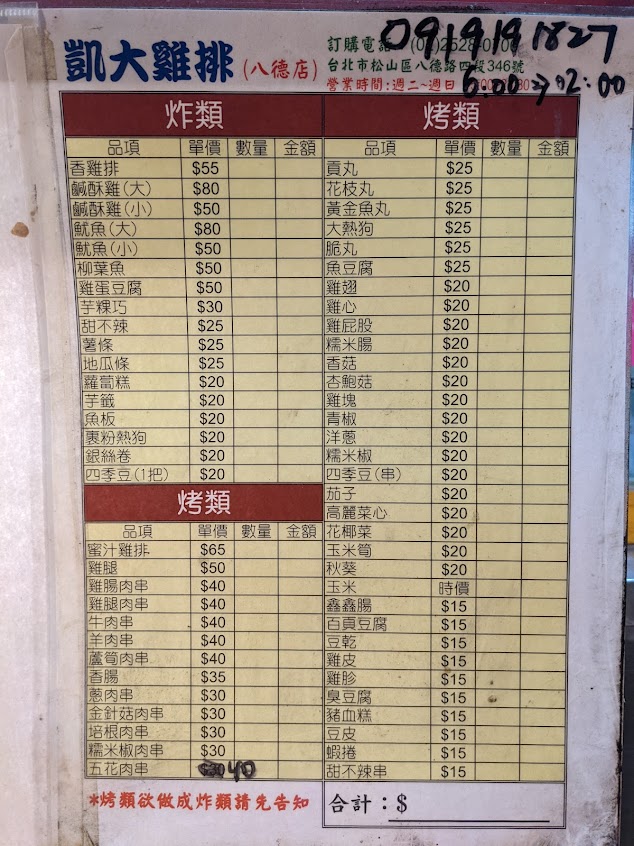 凱大雞排(八德店)
訂購電話 (02)2528-0
0919191827
台北市松山區八德路四段346號
營業時間:週二~週日
6:00→02:00
炸類
品項 單價 數量 金額
香雞排 $55
鹹酥雞(大) $80
鹹酥雞(小) $50
魷魚(大) $80
魷魚(小) $50
柳葉魚 $50
雞蛋豆腐 $50
芋粿巧 $30
甜不辣 $25
薯條 $25
地瓜條 $25
蘿蔔糕 $20
芋籤 $20
魚板 $20
裹粉熱狗 $20
銀絲卷 $20
四季豆(1把) $20
烤類
品項 單價 數量 金額
蜜汁雞排 $65
雞腿 $50
雞腸肉串 $40
雞腿肉串 $40
牛肉串 $40
羊肉串 $40
蘆筍肉串 $40
香腸 $35
蔥肉串 $30
金針菇肉串 $30
培根肉串 $30
糯米椒肉串 $30
五花肉串 40
*烤類欲做成炸類請先告知
烤類
品項 單價 數量 金額
貢丸 $25
花枝丸 $25
黃金魚丸 $25
大熱狗 $25
脆丸 $25
魚豆腐 $25
雞翅 $20
雞心 $20
雞屁股 $20
糯米腸 $20
香菇 $20
杏鮑菇 $20
雞塊 $20
青椒 $20
洋蔥 $20
糯米椒 $20
四季豆(串) $20
茄子 $20
高麗菜心 $20
花椰菜 $20
玉米筍 $20
秋葵 $20
玉米 時價
鑫鑫腸 $15
百頁豆腐 $15
豆乾 $15
雞皮 $15
雞胗 $15
臭豆腐 $15
豬血糕 $15
豆皮 $15
蝦捲 $15
甜不辣串 $15
合計:$